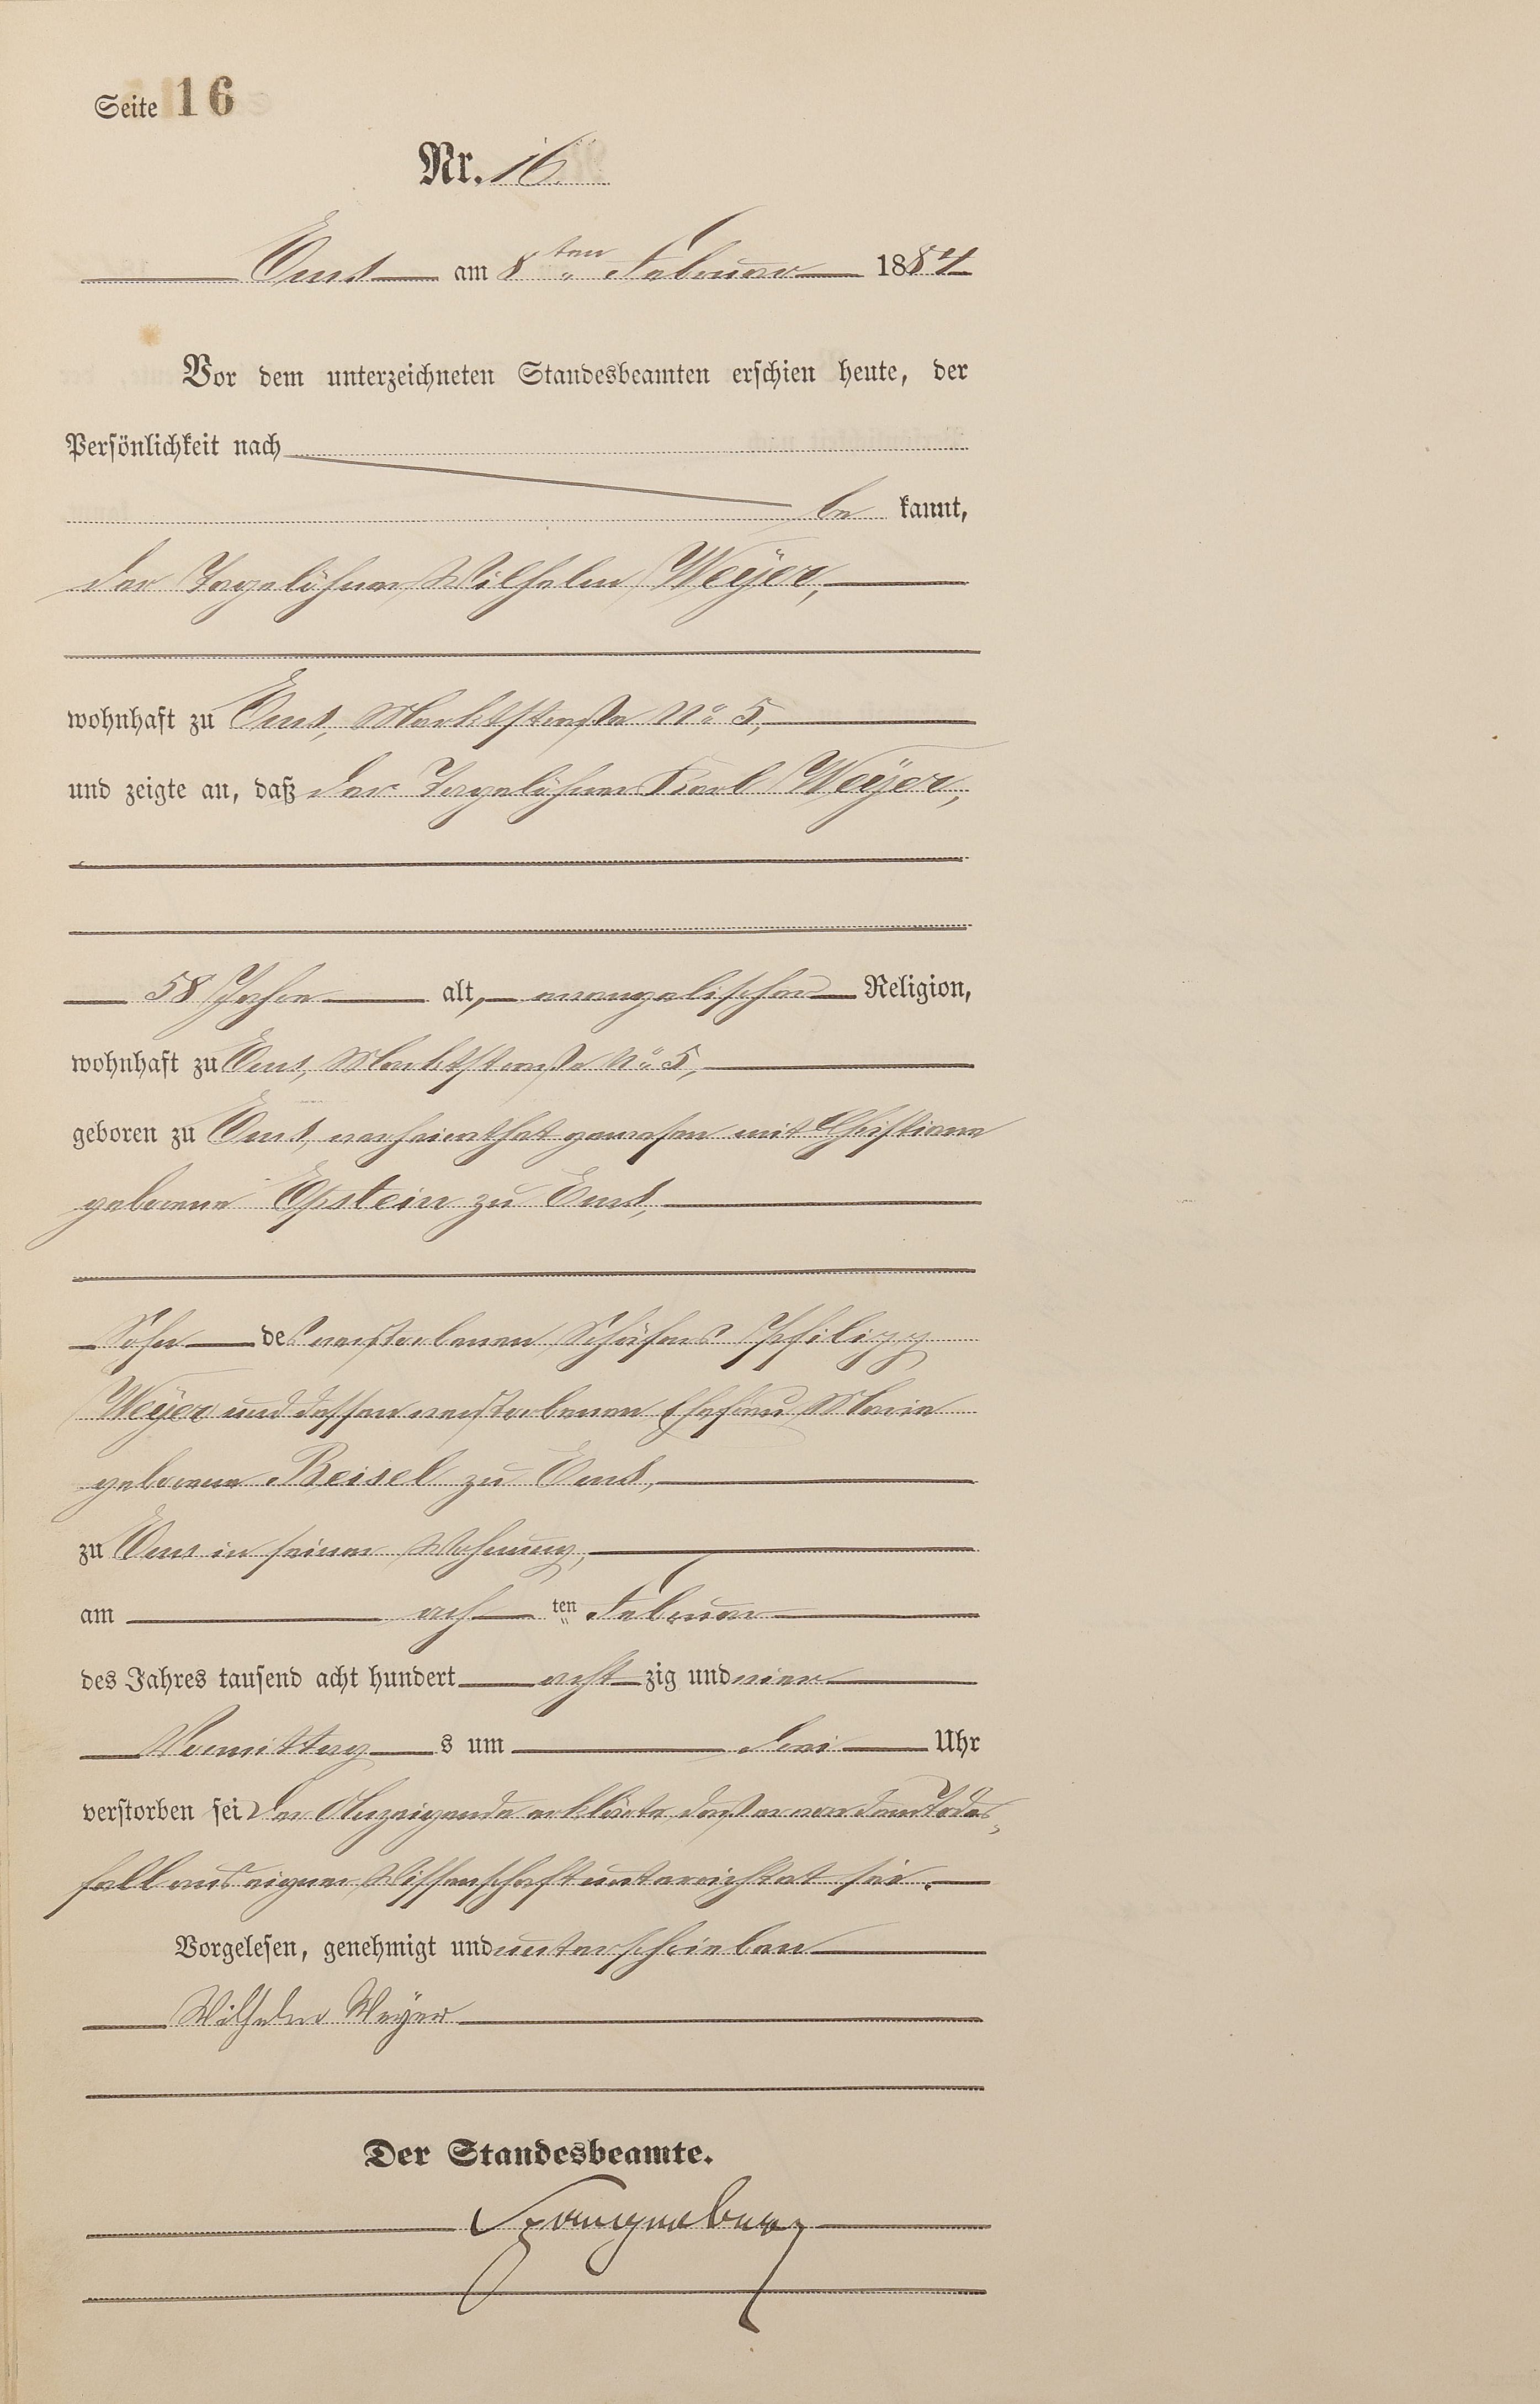 Seite 16
Nr. 16.
Ems am 8ten Februar 1884
Vor dem unterzeichneten Standesbeamten erschien heute, der
Persönlichkeit nach
be kannt,
der Tagelöhner Wilhelm Weyer,
wohnhaft zu Ems, Marktstraße No 5,
und zeigte an, daß der Tagelöhner Karl Weyer,
58 Jahre alt, evangelischer Religion,
wohnhaft zu Ems, Marktstraße No 5,
geboren zu Ems, verheirathet gewesen mit Christiane
geborene Epstein zu Ems,
Sohn des verstorbenen Schäfers Philipp
Weyer und dessen verstorbenen Ehefrau Marie
geborene Beisel zu Ems,
zu Ems in seiner Wohnung,
am ach ten Februar
des Jahres tausend acht hundert acht zig und vier
Vormittag s um drei Uhr
verstorben sei. Der Anzeigende erklärte, daß er von dem Todes-
fall aus eigner Wissenschaft unterrichtet sei.
Vorgelesen, genehmigt und unterschrieben
Wilhelm Weyer
Der Standesbeamte.